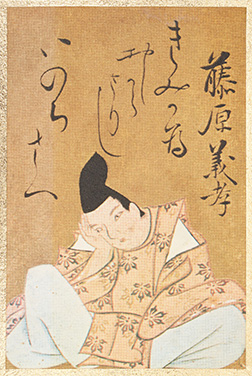 藤原義孝
きみか為
おしからさりし
いのちさへ